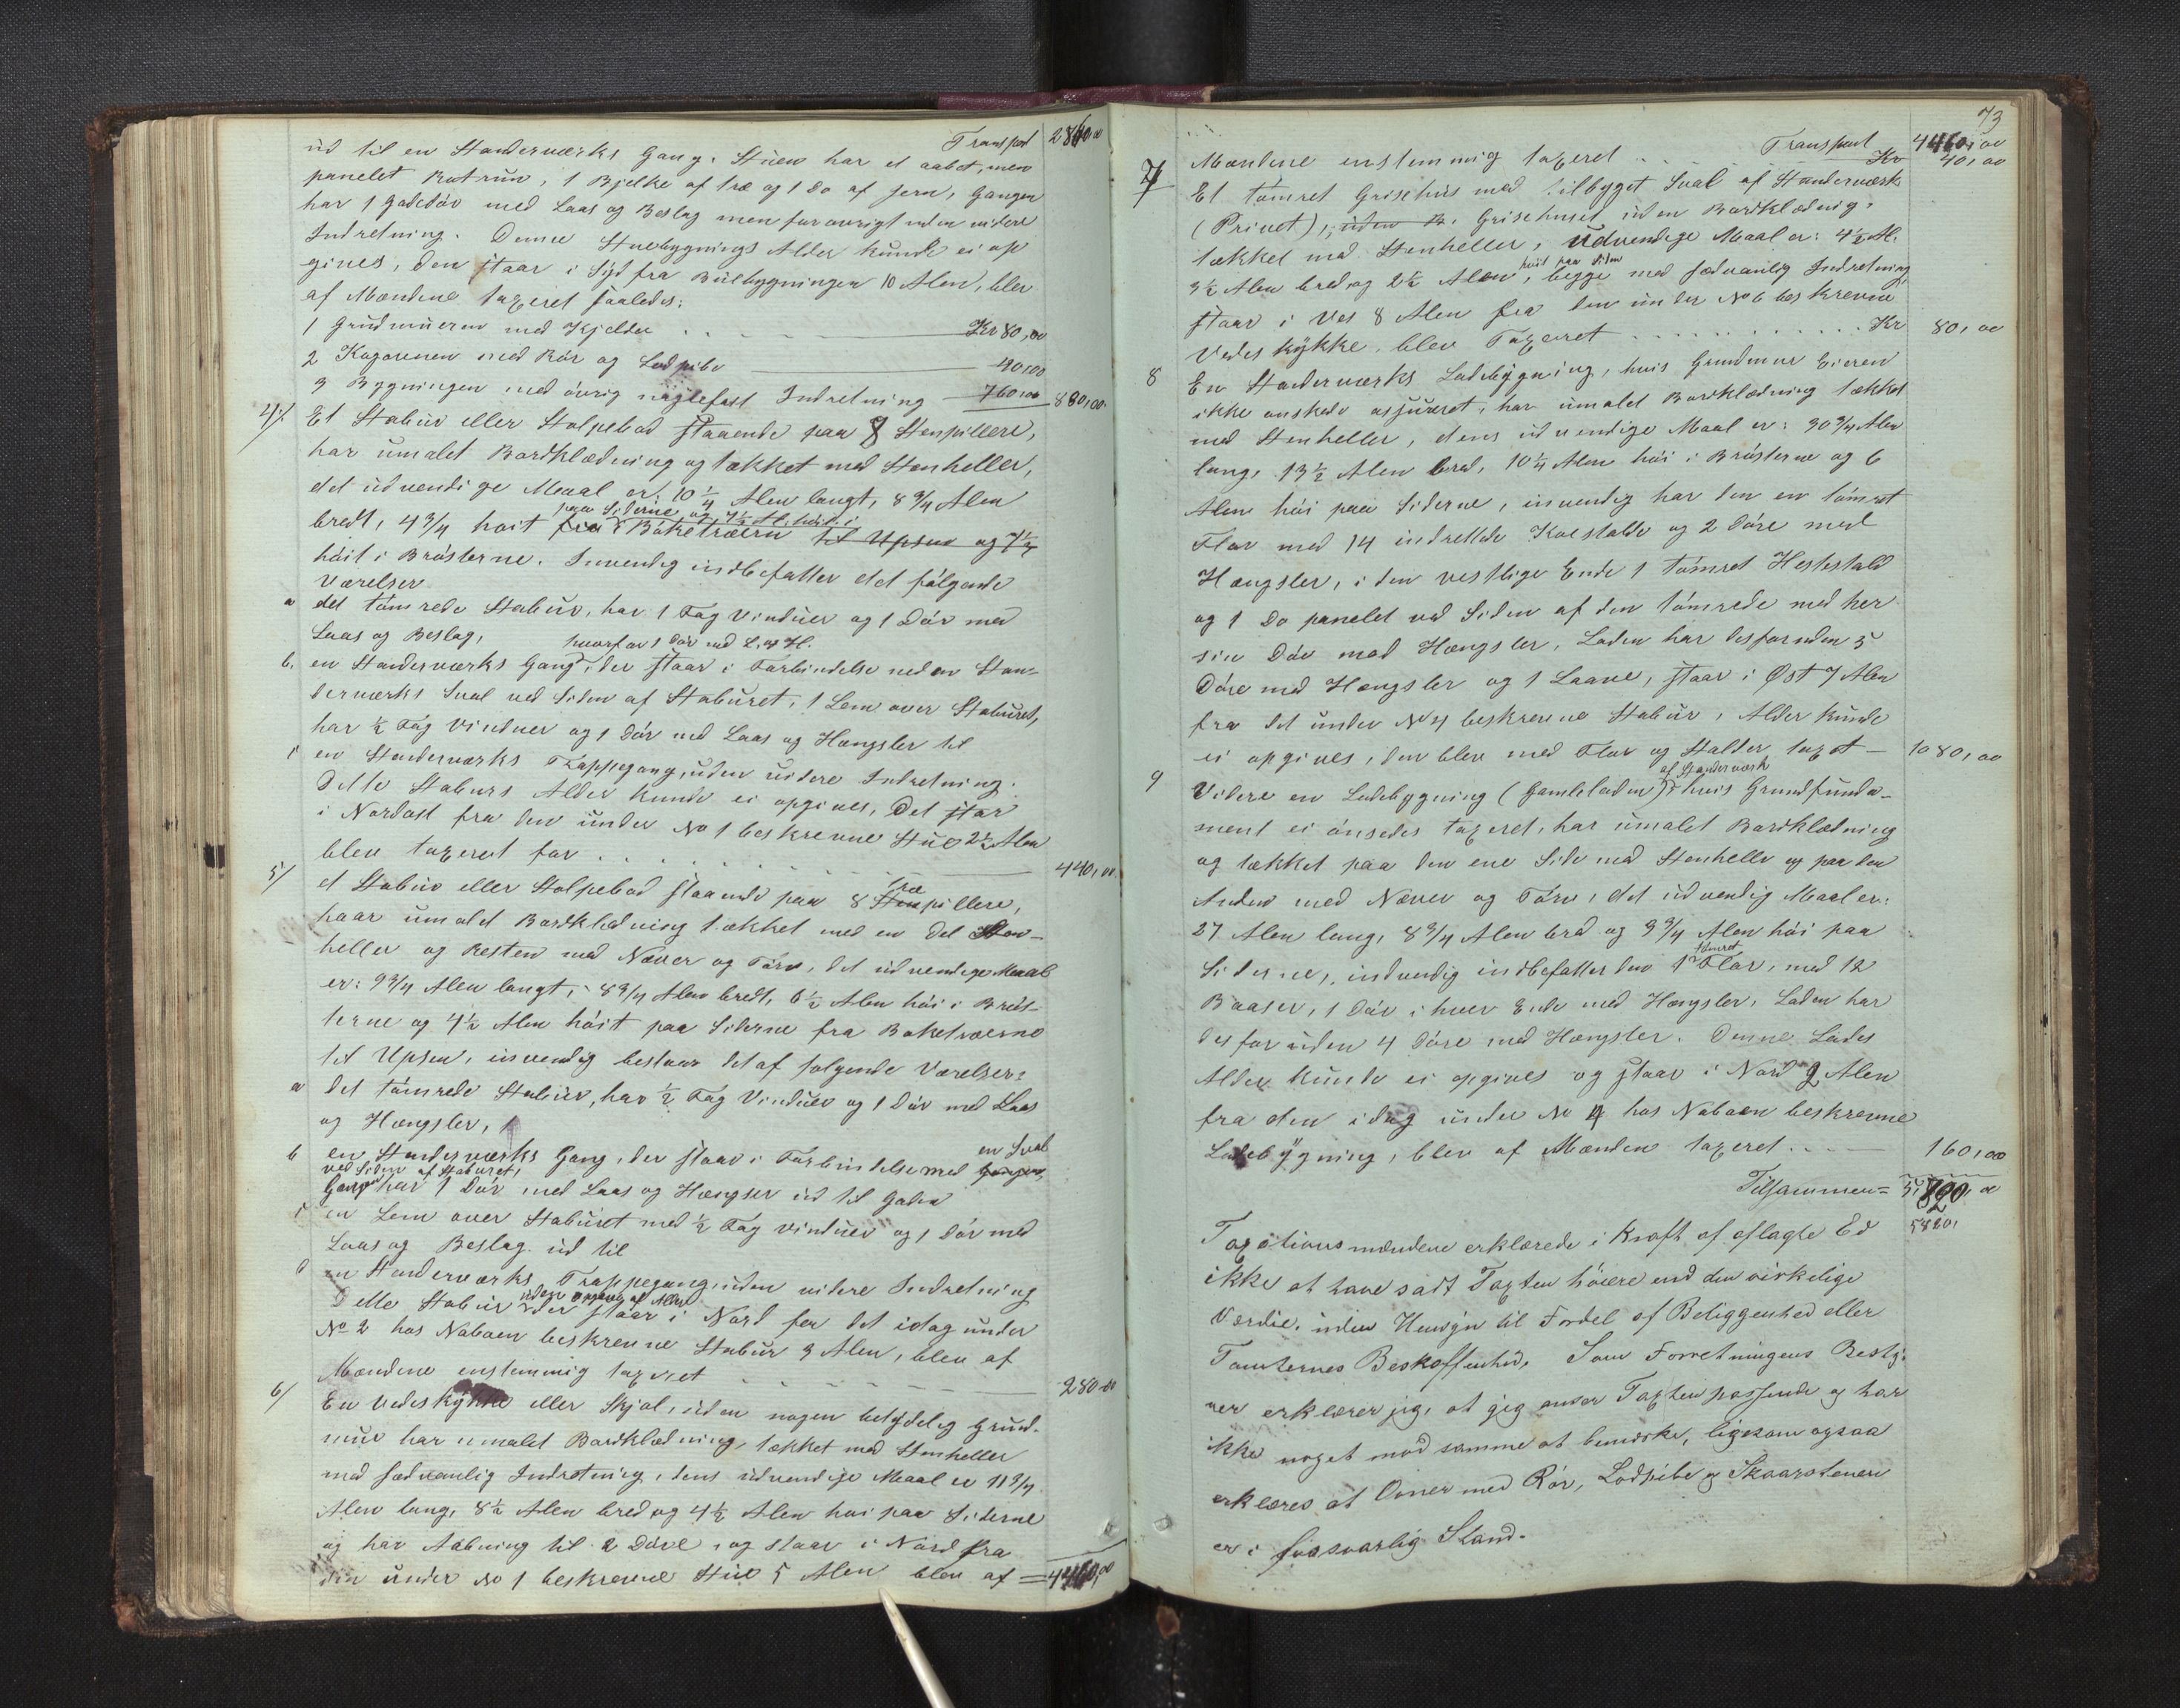 Transport 2860,00
ud til en Standerværks Gang. Stuen har et aabet, men
panelet Rotrum, 1 Bjelke af træ og 1 Do af Jern, Gangen
har 1 Gadedør med Laas og Beslag men forøvrigt uden videre
Indretning. Denne Stuebygnings Alder kunde ei op
gives, den staar i Syd fra Buebygningen 10 Alen, blev
af Mændene taxeret saaledes:
1 Grudmueren med Kjelder Kr 80,00
2 Kogovnen med Rør og Lodpibe 40,00
3 Bygningen med øvrig naglefast Indretning 760,00 880,00.
4/. Et Stabur eller Stolpebod staaende paa 8 Stenpillere,
har umalet Bordklædning og tækket med Stenheller,
det udvendige Maal er: 10 1/4 Alen langt, 8 3/4 Alen
paa Siderne og 7 1/2 Al. høit i
bredt, 4 3/4 hoit fra Baketrærn til Upsen og 7 1/2
høit i Brøsterne. Invendig indbefatter det følgende
Værelser
a det tømrede Stabur, har 1 Fag Vinduer og 1 Dør med
Laas og Beslag,
hvorfor 1 Dør med L. og H.
b. en Standerværks Gang, der staar i Forbindelse med en Stan-
derværks Sval ved Siden af Staburet, 1 Lem over Staburet,
har 1/2 Fag Vinduer og 1 Dør med Laas og Hængsler til
c en Standerværks Trappegang, uden videre Indretning.
Dette Staburs Alder kunde ei opgives, Det star
i Nordost fra den under No 1 beskrevne Stue 2 1/2 Alen
blev taxeret for 440,00.
5/ et Stabur eller Stolpebod staaende paa 8 Stenpillere,
Træ
haar umalet Bordklædning tækket med en del Sten-
heller og Resten med Næver og Tørv, det udvendige Maal
er: 9 3/4 Alen langt, 8 3/4 Alen bredt, 6 1/2 Alen høi i Brøs-
terne og 4 1/2 Alen høit paa Siderne fra Baketræerne
til Upsen, invendig bestaar det af følgende Værelser:
a det tømrede Stabur, har 1/2 Fag Vinduer og 1 Dør med Laas
og Hængsler,
b en Standerværks Gang, der staar i Forbindelse med Gangen,
en Sval
ved Siden af Staburet,
Gangen har 1 Dør med Laas og Hængser ud til Gaden
c en Lem over Staburet med 1/2 Fag Vinduer og 1 Dør med
Laas og Beslag ud til
d en Standerværks Trappegang, uden videre Indretning
uden opgang af Alder
Dette Stabur der staar i Nord for det idag under
No 2 hos Naboen beskrevne Stabur 3 Alen, blev af
Mændene enstemmig taxeret 280,00
6/ En Vedeskykke eller Skjol, uden nogen betydelig Grund-
mur har umalet Bordklædning, tækket med Stenheller
med sædvanlig Indretning, dens udvendige Maal er 11 3/4
Alen lang, 8 1/2 Alen bred og 4 1/2 Alen høi paa Siderne
og har Aabning til 2 Døre, og staar i Nord fra
den under No 1 beskrevne Stue 5 Alen blev af = 4460,00
73
Transport 4460,00
Mændene enstemmig taxeret Kr 40,00
7 Et tømret Grisehus med tilbyget Sval af Standerværk
(Privet), uden B. Grisehuset uden Bordklædnig,
tækket med Stenheller, Udvendige Maal er: 4 1/2 Al.
høit paa Siden
3 1/2 Alen bred og 2 1/2 Alen, begge med sædvanlig Indretning,
staar i Ves 8 Alen fra den under No 6 beskrevne
Vedeskykke, blev Taxeret Kr 80,00
8 En Standerværks Ladebygning, hvis Grundmur Eieren
ikke ønskede assureret, har umalet Bordklædning tækket
med Stenheller, dens udvendige Maal er: 30 3/4 Alen
lang, 13 1/2 Alen bred, 10 1/4 Alen høi i Brøsterne og 6
Alen høi paa Siderne, invendig har den en tømret
Flor med 14 indrettede Koestalde og 2 Døre med
Hængsler, i den vestlige Ende 1 tømret Hestestald
og 1 Do panelet ved Siden af den tømrede med her
sin Dør med Hængsler, Laden har desforuden 5
Døre med Hængsler og 1 Laave, staar i Øst 7 Alen
fra det under No 4 beskrevne Stabur, Alder kunde
ei opgives, den blev med Flor og Stalder taxet 1080,00
af Standerværk
9 Videre en Ladebygning (Gamleladen) hvis Grundfunda-
ment ei ønsedes taxeret, har umalet Bordklædning
og tækket paa den ene Side med Stenhelle og paa den
Anden med Næver og Tørv, det udvendig Maal er:
27 Alen lang, 8 3/4 Alen bred og 3 3/4 Alen høi paa
tømret
Siderne, indvendig indbefatter den 1 Flor, med 12
Baaser, 1 Dør i hver Ende med Hængsler, Laden har
desforuden 4 Døre med Hængsler. Denne Lades
Alder kunde ei opgives og staar i Nord 2 Alen
fra den idag under No 4 hos Naboen beskrevne
Ladebygning, blev af Mænden taxeret 160,00
Tilsammen = 5,820,00
5820,
Taxationsmændene erklærede i Kraft af aflagte Ed
ikke at have sadt Taxten høiere end den virkelige
Værdie, uden Hensyn til Fordel af Beliggenhed eller
Tomternes Beskaffenhed. Som Forretningens Besty-
rer erklærer jeg, at jeg anser Taxten passende og har
ikke noget mod samme at bemærke, ligesom ogsaa
erklæres at Ovner med Rør, Lodpibe og Skaarstenene
er i forsvarlig Stand.